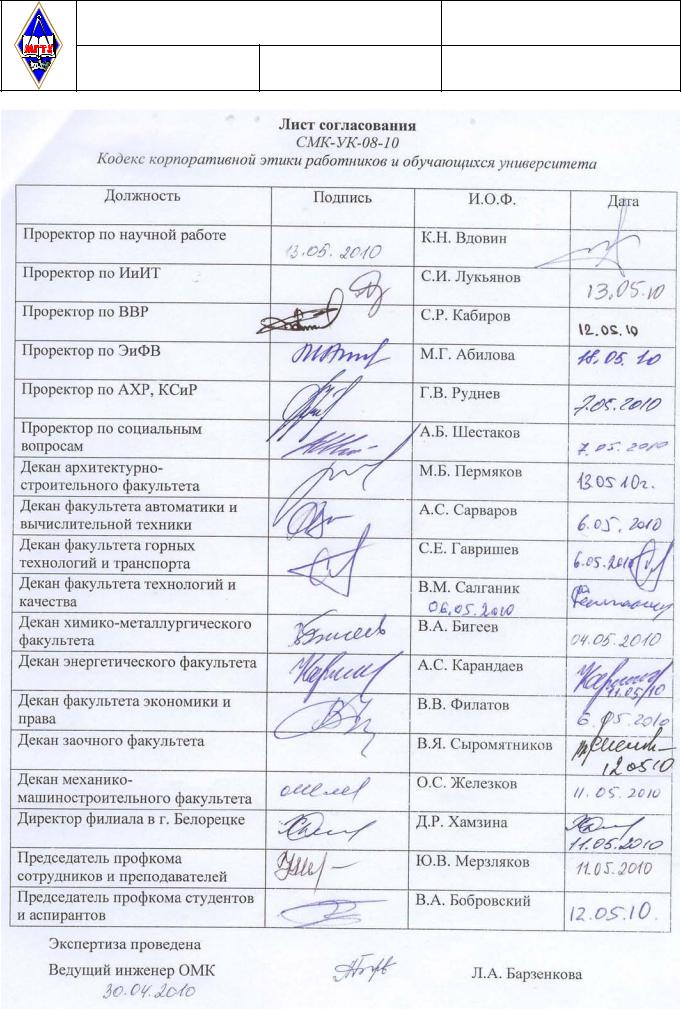 МГТУ
Лист согласования
СМК-УК-08-10
Кодекс корпоративной этики работников и обучающихся университета
Должность Подпись И.О.Ф. Дата
Проректор по научной работе 13.05.2010 К.Н. Вдовин
Проректор по ИиИТ С.И. Лукьянов 13.05.10
Проректор по ВВР С.Р. Кабиров 12.05.10
Проректор по ЭиФВ М.Г. Абилова 18.05.10
Проректор по АХР, КСиР Г.В. Руднев 7.05.2010
Проректор по социальным
вопросам А.Б. Шестаков 7.05.2010
Декан архитектурно-
строительного факультета М.Б. Пермяков 13.05 10г.
Декан факультета автоматики и
вычислительной техники А.С. Сарваров 6.05.2010
Декан факультета горных
технологий и транспорта С.Е. Гавришев 6.05.2010
Декан факультета технологий и
качества В.М. Салганик 06.05.2010
Декан химико-металлургического
факультета В.А. Бигеев 04.05.2010
Декан энергетического факультета А.С. Карандаев 11.05/10
Декан факультета экономики и
права В.В. Филатов 6.05.2010
Декан заочного факультета В.Я. Сыромятников 120510
Декан механико-
машиностроительного факультета О.С. Железков 11.05.2010
Директор филиала в г. Белорецке Д.Р. Хамзина 11.05.2010
Председатель профкома
сотрудников и преподавателей Ю.В. Мерзляков 11.05.2010
Председатель профкома студентов
и аспирантов В.А. Бобровский 12.05.10.
Экспертиза проведена
Ведущий инженер ОМК Л.А. Барзенкова
30.04.2010